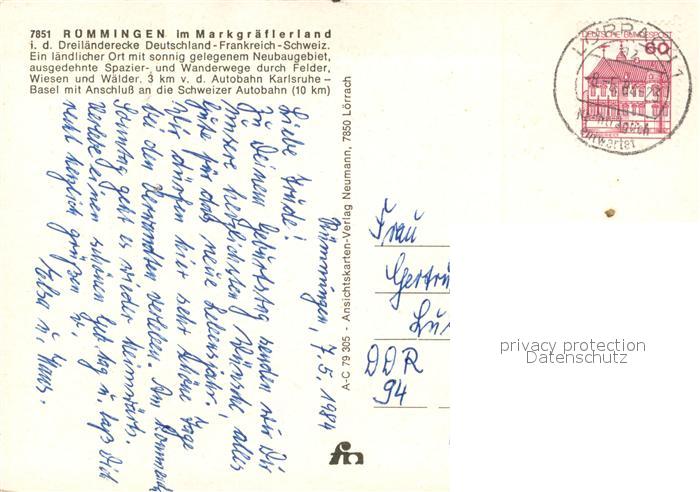 7851 RÜMMINGEN im Markgräflerland
i. d. Dreiländerecke Deutschland-Frankreich-Schweiz.
Ein ländlicher Ort mit sonnig gelegenem Neubaugebiet,
ausgedehnte Spazier- und Wanderwege durch Felder,
Wiesen und Wälder. 3 km v. d. Autobahn Karlsruhe –
Basel mit Anschluß an die Schweizer Autobahn (10 km)
DEUTSCHE BUNDESPOST
60
LÖRRACH 1
Nachträglich
entwertet
Rümmingen, 7.5.1984
Liebe Trude!
Zu Deinem Geburtstag senden wir Dir
unsere herzlichsten Wünsche, alles
Gute für das neue Lebensjahr.
Wir dürfen hier sehr schöne Tage
bei den Verwandten verleben. Am kommend.
Sonntag geht es wieder heimwärts.
Verlebe einen schönen Geb.tag u. laß Dich
recht herzlich grüßen v.
Elsa u. Hans.
A-C 79 305 - Ansichtskarten-Verlag Neumann, 7850 Lörrach
Frau
Gertru
DDR
94
privacy protection
Datenschutz